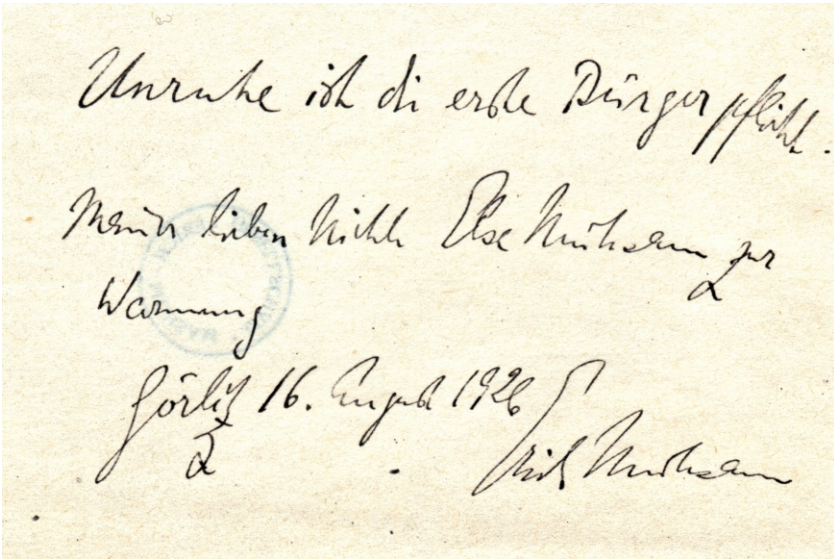 Unruhe ist die erste Bürgerpflicht.
Meiner lieben Nichte Else Mühsam zur
Warnung
Görlitz 16. August 1926
Erich Mühsam